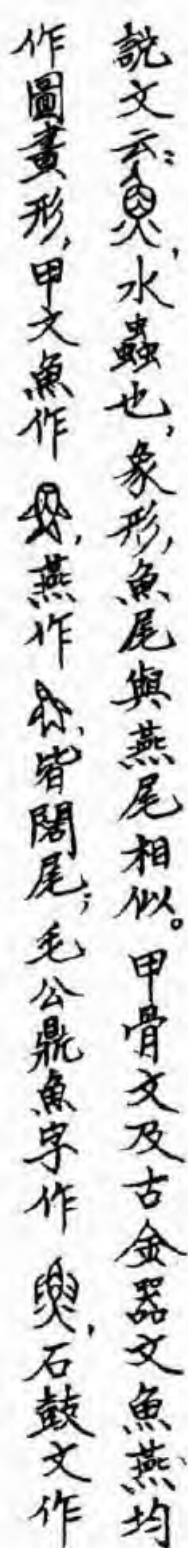 說文云：，水蟲也，象形，魚尾與燕尾相似。甲骨文及古金器文魚燕均
作圖畫形，甲文魚作，燕作，皆闊尾；毛公鼎魚字作，石鼓文作